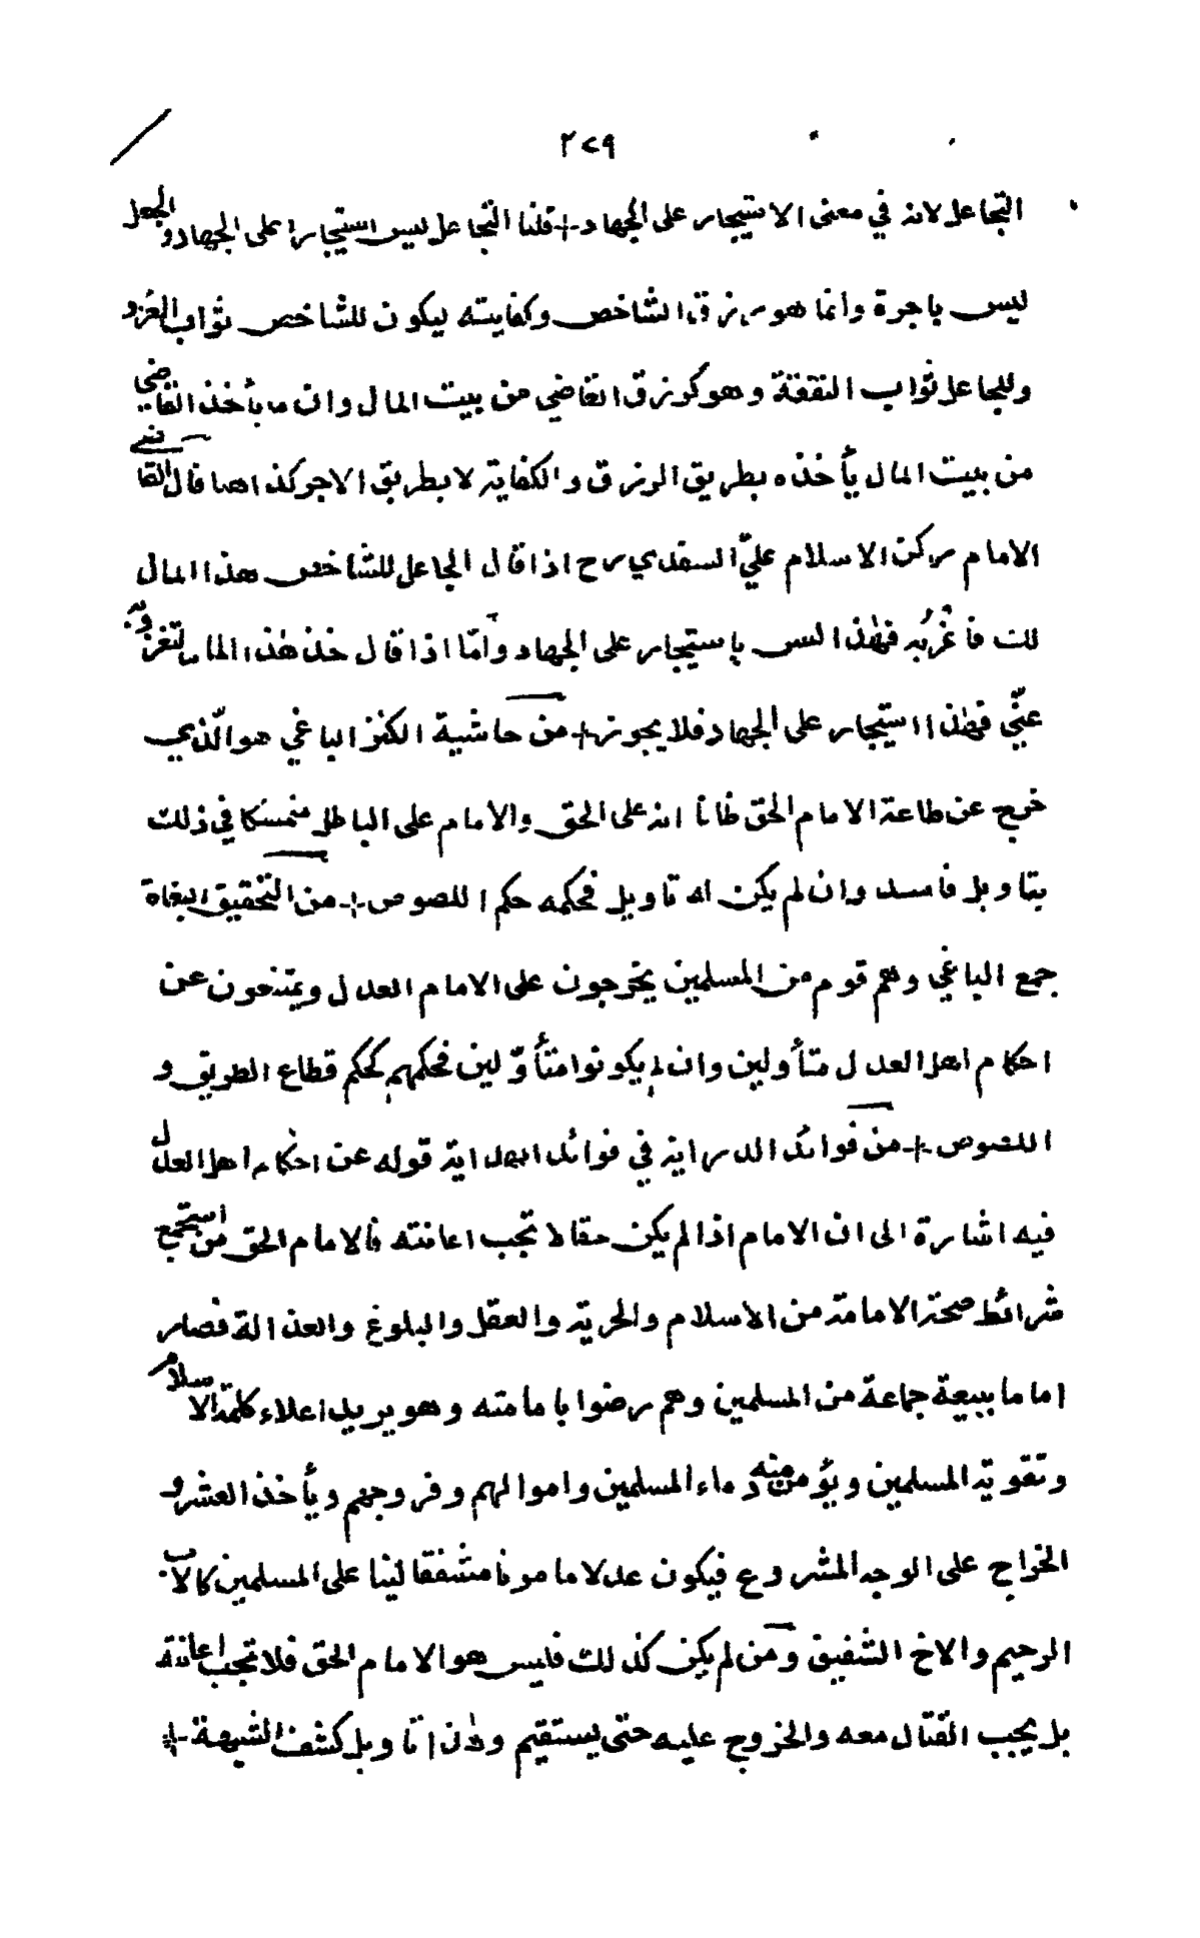 ٢٧٩
التجاعل لانه في معنى الاستيجار على الجهاد + قلنا التجاعل ليس استيجارا على الجهاد والجعل
ليس باجرة وانما هو من رزق الشاخص وكفايته ليكون للشاخص ثواب الغزو
وللجاعل ثواب النفقة وهو كرزق القاضي من بيت المال وان ما يأخذ القاضي
من بيت المال يأخذه بطريق الرزق والكفاية لا بطريق الاجر كذا هنا قال القاضي
الامام ركن الاسلام عليّ السغدي رح اذا قال الجاعل للشاخص هذا المال
لك فاغزُ به فهذا ليس باستيجار على الجهاد وامّا اذا قال خذ هذا المال لتغزو به
عنّي فهذا استيجار على الجهاد فلا يجوز + من حاشية الكنز الباغي هو الّذي
خرج عن طاعة الامام الحق ظانا انه على الحق والامام على الباطل متمسكا في ذلك
بتاويل فاسد وان لم يكن له تاويل فحكمه حكم اللصوص + من التحقيق البغاة
جمع الباغي وهم قوم من المسلمين يخرجون على الامام العدل ويمتنعون عن
احكام اهل العدل متأولين وان لم يكونوا متأوّلين فحكمهم كحكم قطاع الطريق و
اللصوص + من فوائد الدراية في فوائد الهداية قوله عن احكام اهل العدل
فيه اشارة الى ان الامام اذا لم يكن حقا لا تجب اعانته فالامام الحق من استجمع
شرائط صحة الامامة من الاسلام والحرية والعقل والبلوغ والعدالة فصار
اماما ببيعة جماعة من المسلمين وهم رضوا بامامته وهو يريد اعلاء كلمة الاسلام
وتقوية المسلمين ويؤمن منه دماء المسلمين واموالهم وفروجهم ويأخذ العشر و
الخراج على الوجه المشروع فيكون عدلا مامونا مشفقا لينا على المسلمين كالاب
الرحيم والاخ الشفيق ومن لم يكن كذلك فليس هو الامام الحق فلا تجب اعانته
بل يجب القتال معه والخروج عليه حتى يستقيم وان تاويل كشف الشبهة +